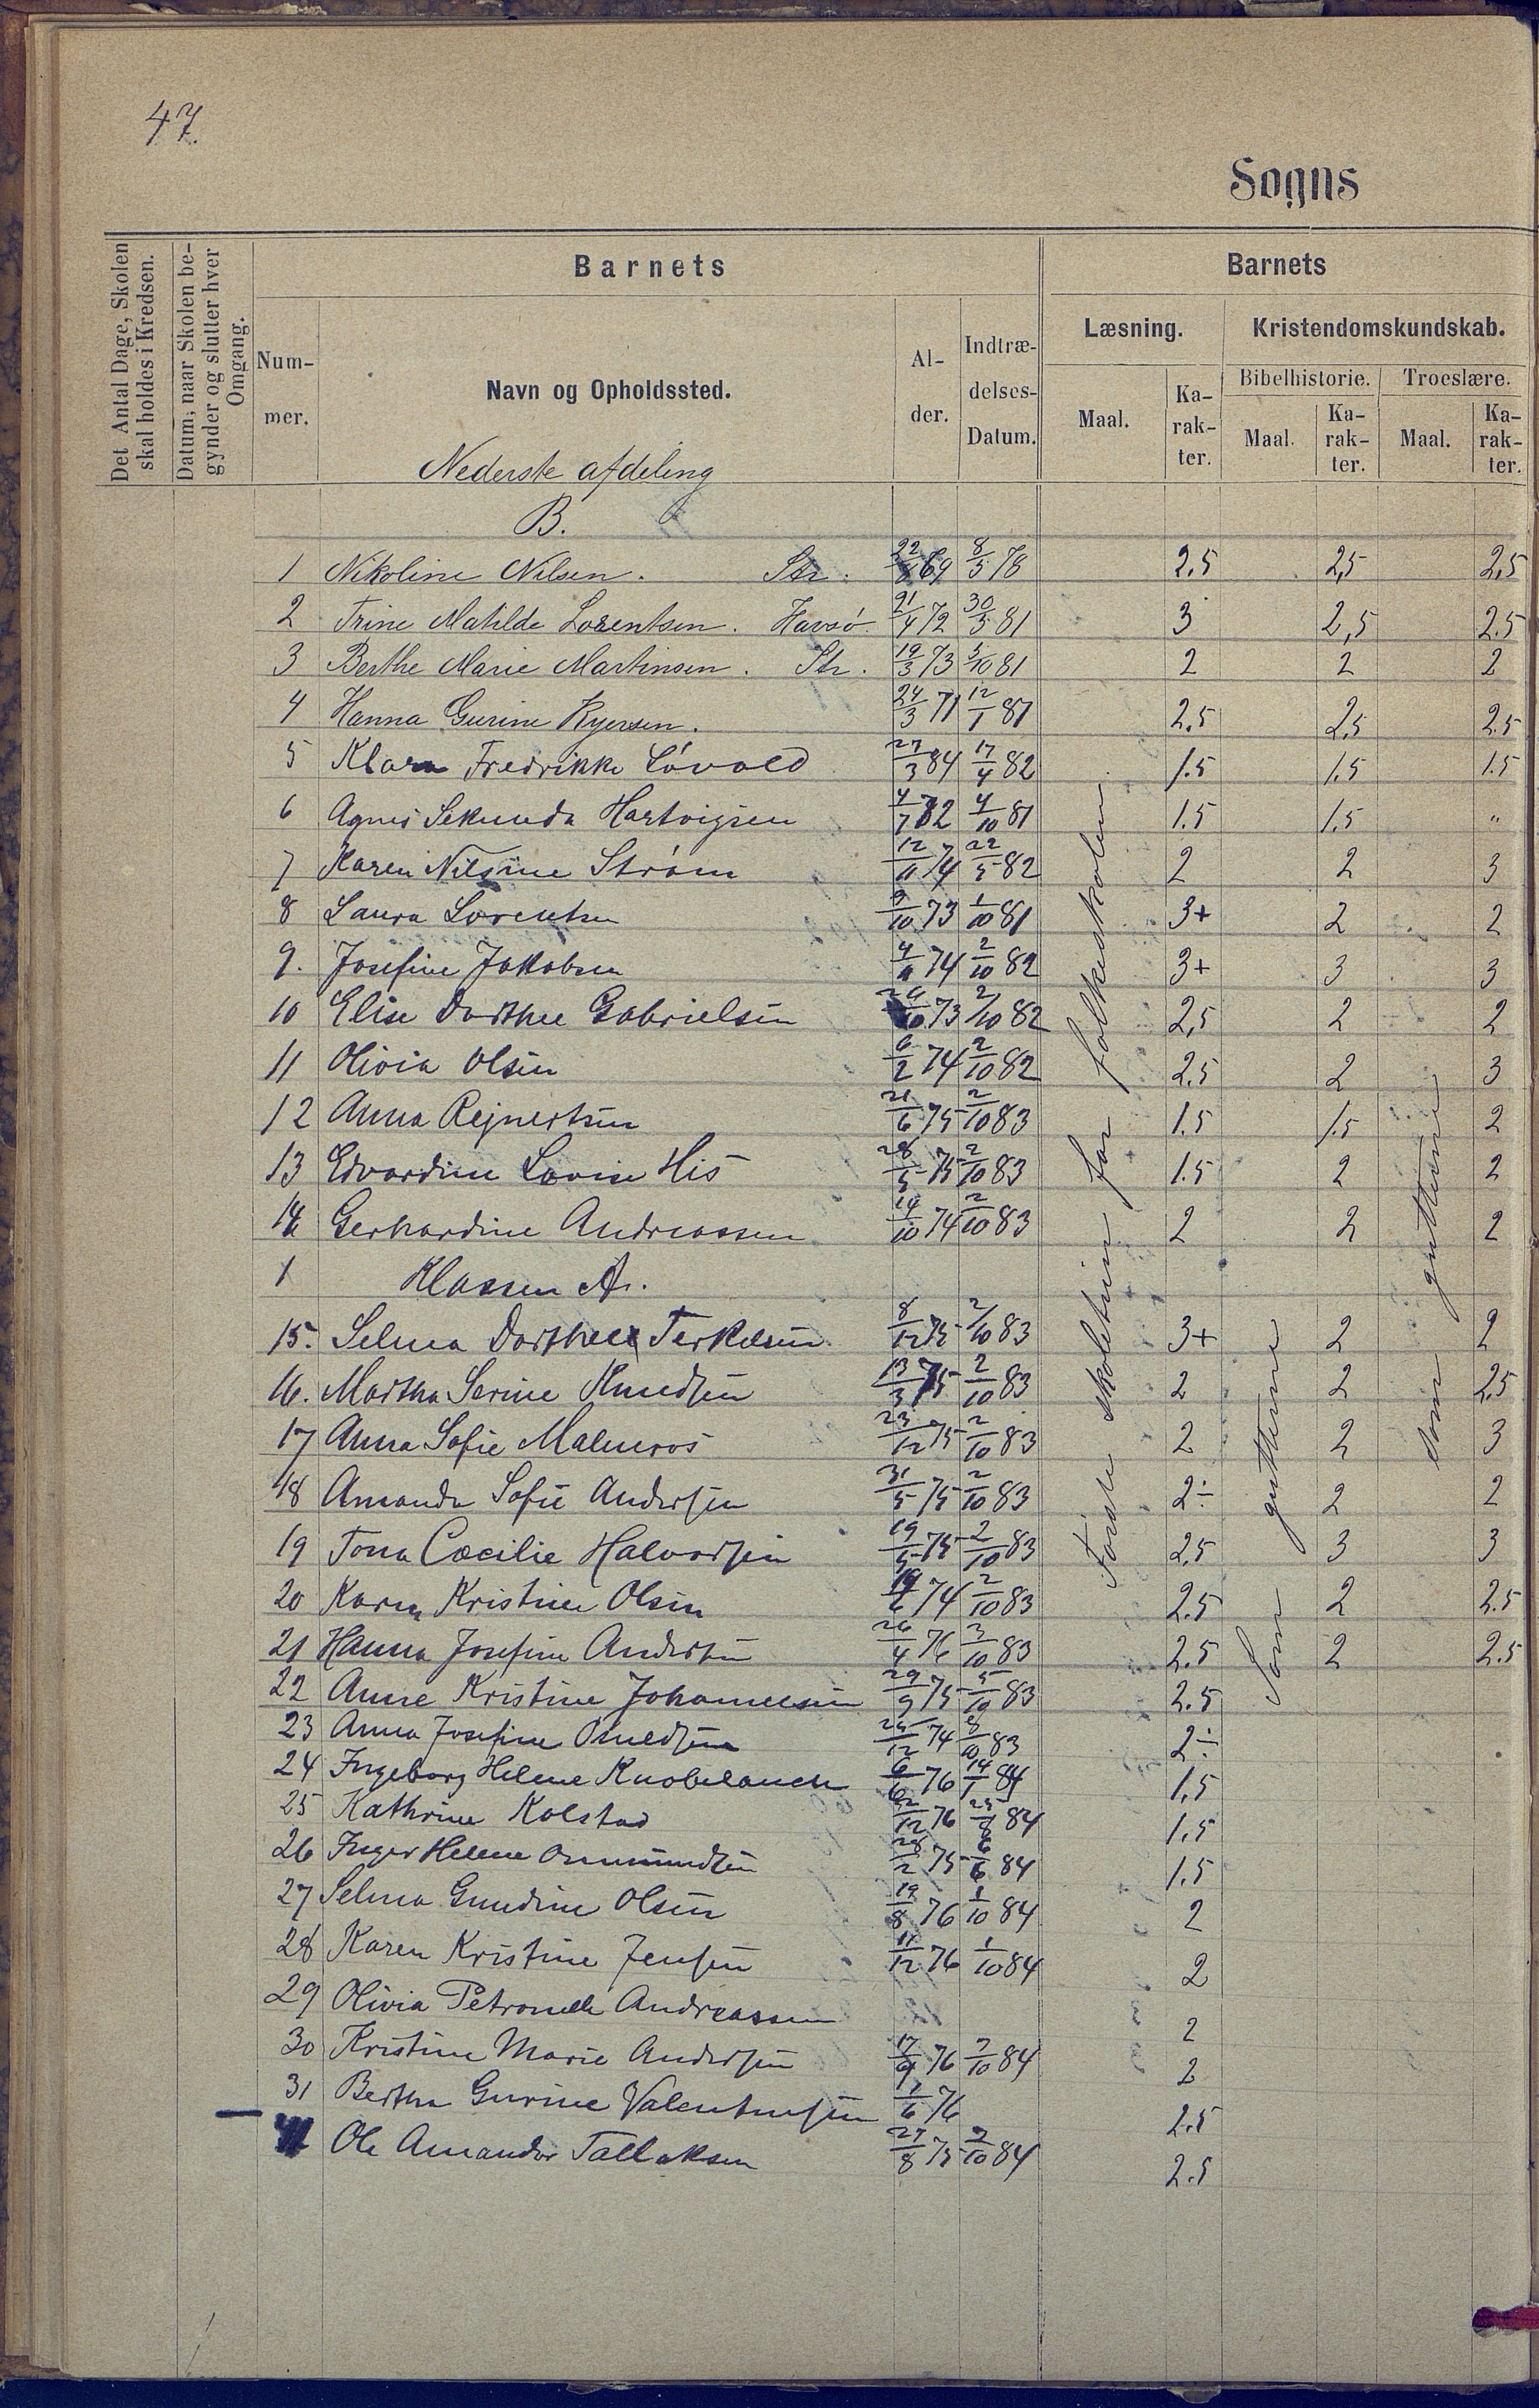 47.
Sogns
Det Antal Dage, Skolen skal holdes i Kredsen.
Datum, naar Skolen begynder og slutter hver Omgang.
Barnets
Nummer.
Navn og Opholdssted.
Alder.
Indtrædelses-Datum.
Barnets
Læsning.
Kristendomskundskab.
Bibelhistorie.
Troeslære.
Maal.
Karakter.
Maal.
Karakter.
Maal.
Karakter.
Nederste afdeling
B.
1 Nikoline Nilsen. Str. 69 8/5 78 2.5 2,5 2,5
2 Trine Matilde Lorentsen. Havsö. 21/4 72 30/5 81 3 2,5 2.5
3 Berthe Marie Martinsen. Str. 19/3 73 5/10 81 2 2 2
4 Hanna Gurine 24/3 71 12/1 81 2.5 2,5 2.5
5 Klara Fredrikke Lövold 27/3 84 17/4 82 1.5 1.5 1.5
6 Agnes Sekunda Hartvigsen 4/7 4/10 81 1.5 1.5 "
7 Karen Nilsine Ström 12/11 74 22/5 82 2 2 3
8 Laura Lorentsen 9/10 73 1/10 81 3+ 2 2
9. Josefine Jakobsen 4/11 74 2/10 82 3+ 3 3
10 Elise Dorthee Gabrielsen 73 2/10 82 2,5 2 2
11 Olivia Olsen 6/2 74 2/10 82 2.5 2 3
12 Anna Rejnertsen 21/6 75 2/10 83 1.5 1.5 2
13 Edvardine Lovise His 28/5 75 2/10 83 1.5 2 2
14 Gerhardine Andreassen 14/10 74 2/10 83 2 2 2
1 Klassen A.
15. Selma Dorthea Terkelsen 8/12 75 2/10 83 3+ 2 2
16. Martha Serine Knudsen 13/3 75 2/10 83 2 2 2.5
17 Anna Sofie Malmros 23/12 75 2/10 83 2 2 3
18 Amanda Sofie Andersen 31/5 75 2/10 83 2÷ 2 2
19 Tona Cæcilie Halvorsen 19/5 75 2/10 83 2.5 3 3
20 Karen Kristine Olsen 74 2/10 83 2.5 2 2.5
21 Hanna Josefine Andersen 26/4 76 3/10 83 2.5 2 2.5
22 Anne Kristine Johannesen 29/9 75 5/10 83 2.5
23 Anna Josefine 25/12 74 8/10 83 2÷
24 Ingeborg Helene Knobelauch 6/6 76 14/1 84 1.5
25 Kathrine Kolstad 22/12 76 25/8 84 1.5
26 Inger Helene Ommundsen 28/2 75 6/6 84 1.5
27 Selma Gundine Olsen 19/8 76 1/10 84 2
28 Karen Kristine Jensen 11/12 76 1/10 84 2
29 Olivia Petronelle Andreassen 2
30 Kristine Marie Andersen 17/9 76 7/10 84 2
31 Bertha Gurine Valentinsen 1/6 76 2.5
Ole Amandor Tallaksen 27/8 75 2/10 84 2.5
Förste skoletrin for folkeskolen.
Som guttene
Som guttene